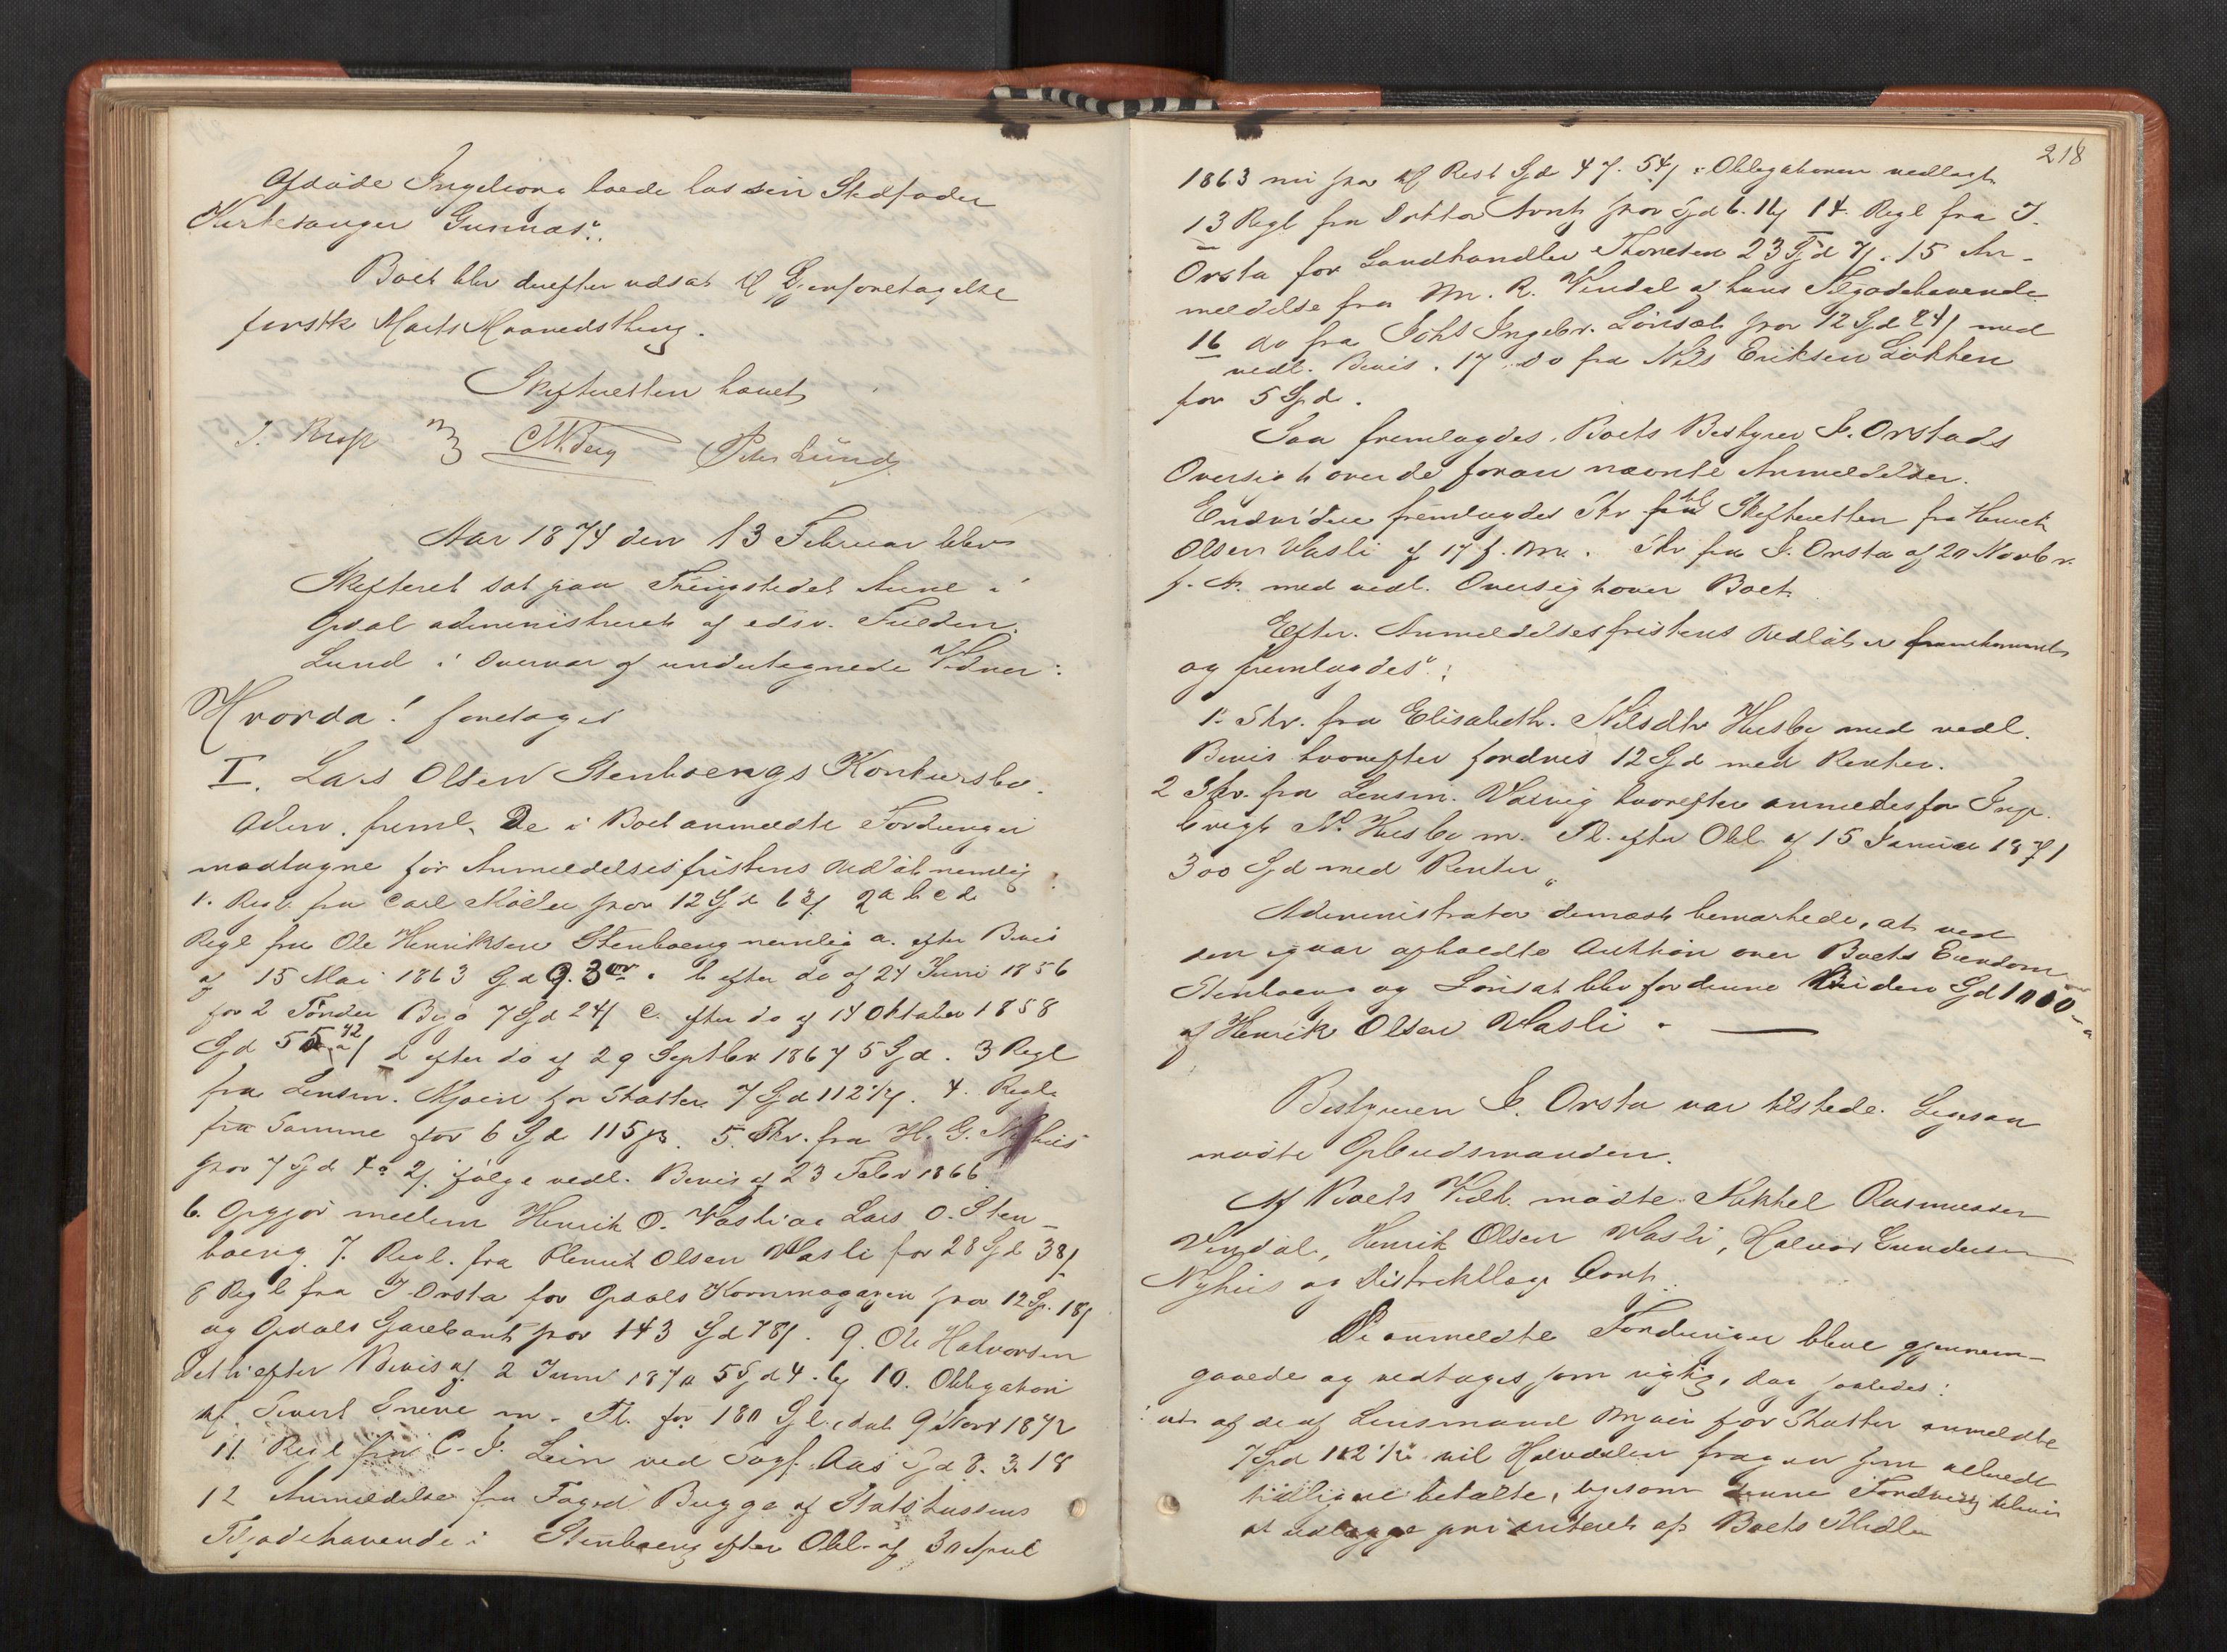 Afdøde Ingeborg boede hos sin Stedfader
Kirkesanger Gunnar".
Boet blev derefter udsat til Gjenforetagelse
førstk Marts Maanedsthing.
Skifteretten hævet
J. Krog CMBerg Peter Lund
Aar 1874 den 13 Februar blev
Skifteret sat paa Thingstedet Aune i
Opdal administreret af edsv. Fuldm.
Lund i Overvær af undertegnede Vidner:
Hvorda! foretoges
I. Lars Olsen Stenboengs Konkursbo.
Adm. freml. De i Boet anmeldte Fordringer
modtagne før Anmeldelsesfristens Udløb nemlig:
1. Regl. fra Carl Møller stor 12 Spd 63/ 2 a b c d
Regl fra Ole Henriksen Stenboeng nemlig a. efter Bevis
af 15 Mai 1863 Spd 9. 3 ort. b efter do af 24 Juni 1856
for 2 Tønder Byg 7 Spd 24/ c. efter do af 14 Oktober 1858
Spd 5 d efter do af 29 Septbr 1867 5 Spd. 3 Regl
fra Lensm. Mjøen for Skatter 7 Spd 112 ½/. 4. Regl.
fra Samme for 6 Spd 115 β. 5. Skr. fra H. G. Nyhuus
stor 7 Spd 4 2/. ifølge vedl. Bevis af 23 Febr 1866.
6. Opgjør mellem Henrik O. Vasli og Lars O. Sten-
boeng. 7. Regl. fra Henrik Olsen Wasli for 28 Spd 38/
8 Regl fra J Orsta for Opdals Kornmagazin stor 12 Sp. 18/
og Opdals Sparebank stor 143 Spd 78/. 9. Ole Halvorsen
efter Bevis af 2 Juni 1870 5 Spd 4. 10. Obligation
til Sivert Sneve m. Fl. for 180 Spd., dat 9 Novr 1872
11 Regl fra C. J. Lein ved Sagf. Aas Spd 8. 3. 18
12 Anmeldelse fra Foged Bugge af Statskassens
Tilgodehavende i Stenboeng efter Obl. af 30 April
218
1863 nu stor til Rest Spd 47. 54/ : Obligationen vedlagt
13 Regl fra Doktor Arntz stor Spd 6. 14. Regl fra J.
Orsta for Landhandler Thonesen 23 Spd 15 An-
meldelse fra M. R. Vindal af hans Tilgodehavende
16 do fra Johs Ingebr. Lønset stor 12 Spd 24/ med
vedl. Bevis. 17. do fra Nils Eriksen Løkken
for 5 Spd.
Saa fremlagdes Boets Bestyrer J. Orstads
Oversigt over de foran nævnte Anmeldelser.
Endvidere fremlagdes Skr til Skifteretten fra Henrik
Olsen Wasli af 17 f. M. Skr fra J. Orsta af 20 Novbr.
f. A. med vedl. Oversigt over Boet.
Efter Anmeldelsesfristens Udløb er fremkommet
og fremlagdes:
1. Skr. fra Elisabeth Nilsdtr Husby med vedl.
Bevis hvorefter fordres 12 Spd med Renter.
2 Skr. fra Lensm. Walvig hvorefter anmeldes for Inge-
brigt N. Husby m. Fl. efter Obl. af 15 Januar 1871
300 Spd med Renter.
Administrator dernæst bemærkede, at ved
den igaar afholdte Auktion over Boets Eiendom
Stenboeng og Lønset blev for denne budne Spd 1000
af Henrik Olsen Wasli.
Bestyreren J. Orsta var tilstede. Ligesaa
mødte Opbudsmanden.
Af Boets Vedk. mødte Mikkel Rasmussen
Vindal, Henrik Olsen Wasli, Halvor Gundersen
Nyhus og Distriktslæge Arntz.
De anmeldte Fordringer bleve gjennem-
gaaede og vedtoges som rigtige, dog saaledes:
at af de af Lensmand Mjøen for Skatter anmeldte
7 Spd 112 ½ vil Halvdelen fragaa som allerede
tidligere betalte, ligesom denne Fordring bliver
at udlægge prioriteret af Boets Midler